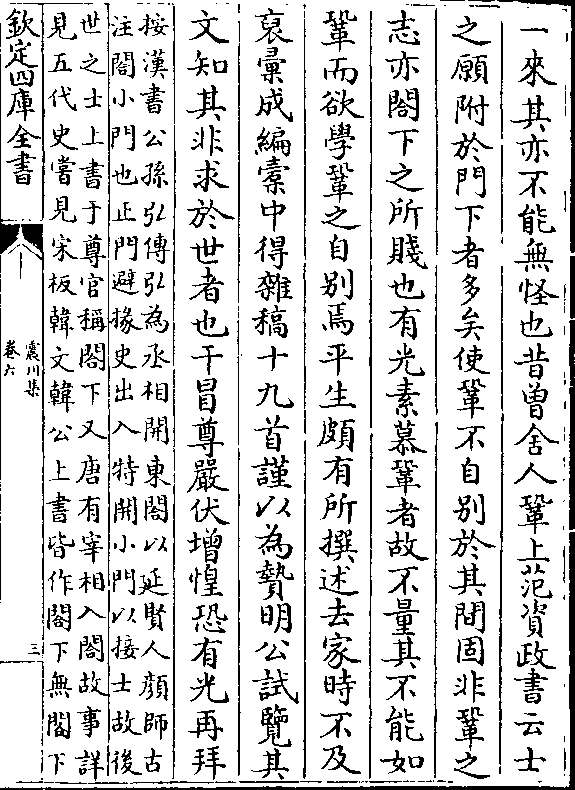 一來其亦不能無怪也昔曾舍人鞏上范資政書云士
之願附於門下者多矣使鞏不自别於其間固非鞏之
志亦閤下之所賤也有光素慕鞏者故不量其不能如
鞏而欲學鞏之自别焉平生頗有所撰述去家時不及
裒彙成編橐中得雜稿十九首謹以為贄明公試覽其
文知其非求於世者也干冒尊嚴伏增惶恐有光再拜
按漢書公孫弘傳弘為丞相開東閤以延賢人顔師古
注閤小門也正門避掾史出入特開小門以接士故後
世之士上書于尊官稱閤下又唐有宰相入閤故事詳
見五代史嘗見宋板韓文韓公上書皆作閤下無閣下
欽定四庫全書
震川集
卷六
三